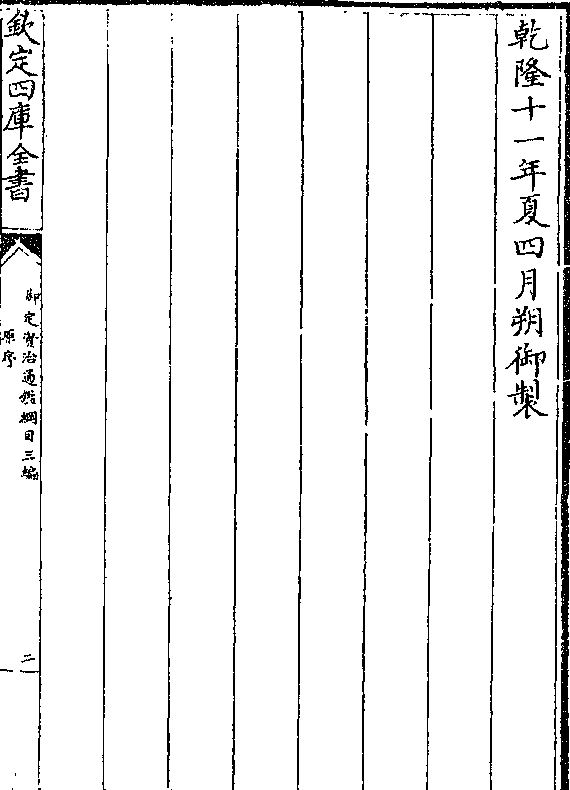 乾隆十一年夏四月朔御製
欽定四庫全書
御定資治通鑑綱目三編
原序
二